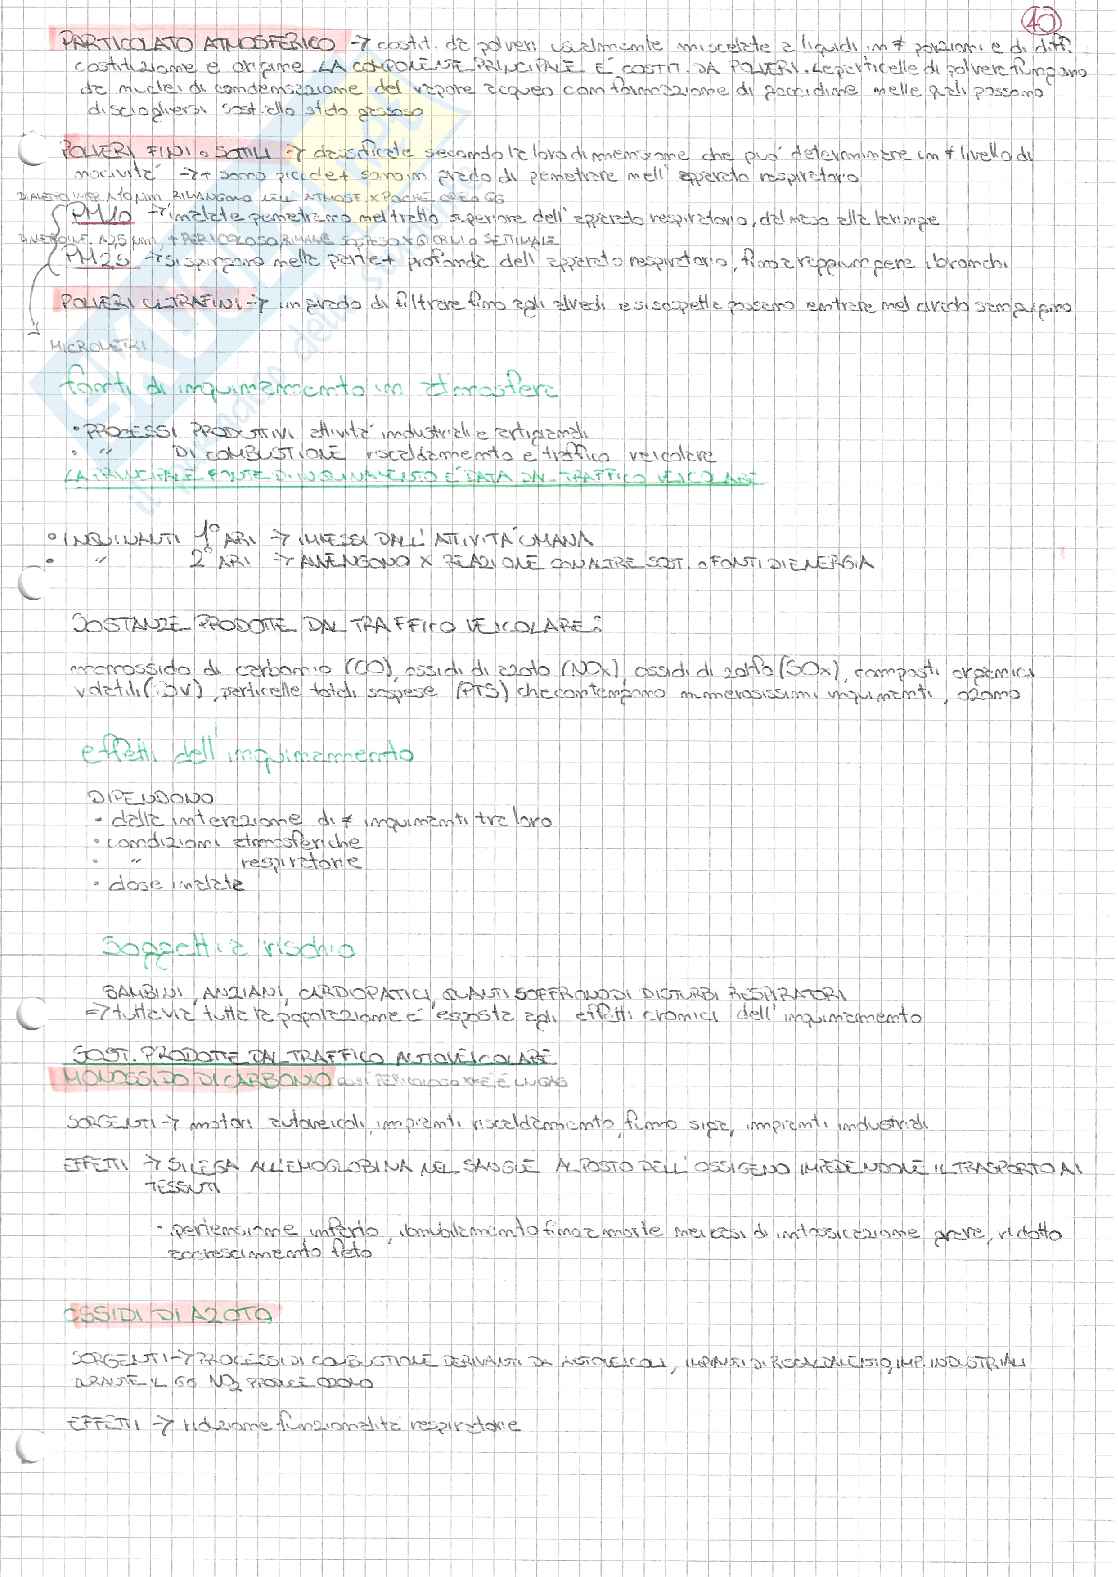 40
PARTICOLATO ATMOSFERICO → costit. da polveri usualmente miscelate a liquidi in ≠ porzioni e di diff.
costituzione e origine. LA COMPONENTE PRINCIPALE E' COSTIT. DA POLVERI. Le particelle di polvere fungono
da nuclei di condensazione del vapore acqueo con formazione di goccioline nelle quali possono
disciogliersi sost. allo stato gassoso
POLVERI FINI o SOTTILI → classificate secondo la loro dimensione che può determinare un ≠ livello di
nocività → + sono piccole + sono in grado di penetrare nell'apparato respiratorio
RIMANGONO NELL'ATMOSF. X POCHE ORE o GG
PM10 → inalate penetrano nel tratto superiore dell'apparato respiratorio, dal naso alla laringe
+ PERICOLOSO RIMANE SOSPESO X GIORNI o SETTIMANE
PM2.5 → si spingono nella parte + profonda dell'apparato respiratorio, fino a raggiungere i bronchi
POLVERI ULTRAFINI → in grado di filtrare fino agli alveoli e si sospetta possano entrare nel circolo sanguigno
MICROMETRI
fonti di inquinamento in atmosfera
• PROCESSI PRODUTTIVI attività industriali e artigianali
• " DI COMBUSTIONE riscaldamento e traffico veicolare
LA PRINCIPALE FONTE DI INQUINAMENTO E' DATA DAL TRAFFICO VEICOLARE
• INQUINANTI 1°ARI → IMMESSI DALL'ATTIVITÀ UMANA
• " 2°ARI → AVVENGONO X REAZIONE CON ALTRE SOST. o FONTI DI ENERGIA
SOSTANZE PRODOTTE DAL TRAFFICO VEICOLARE:
monossido di carbonio (CO), ossidi di azoto (NOx), ossidi di zolfo (SOx), composti organici
volatili, particelle totali sospese (PTS) che contengono numerosissimi inquinanti, ozono
effetti dell'inquinamento
DIPENDONO
• dalla interazione di ≠ inquinanti tra loro
• condizioni atmosferiche
• " respiratorie
• dose inalata
Soggetti a rischio
BAMBINI, ANZIANI, CARDIOPATICI, QUANTI SOFFRONO DI DISTURBI RESPIRATORI
⇒ tuttavia tutta la popolazione è esposta agli effetti cronici dell'inquinamento
SOST. PRODOTTE DAL TRAFFICO AUTOVEICOLARE
MONOSSIDO DI CARBONIO
SORGENTI → motori autoveicoli, impianti riscaldamento, fumo siga, impianti industriali
EFFETTI → SI LEGA ALL'EMOGLOBINA NEL SANGUE AL POSTO DELL'OSSIGENO IMPEDENDONE IL TRASPORTO AI
TESSUTI
• ipertensione, infarto, annebbiamento fino a morte nei casi di intossicazione grave, ridotto
accrescimento feto
OSSIDI DI AZOTO
SORGENTI → PROCESSI DI COMBUSTIONE DERIVANTI DA AUTOVEICOLI, IMPIANTI DI RISCALDAMENTO, IMP. INDUSTRIALI
DURANTE IL GG NO2 PRODUCE OZONO
EFFETTI → riduzione funzionalità respiratorie